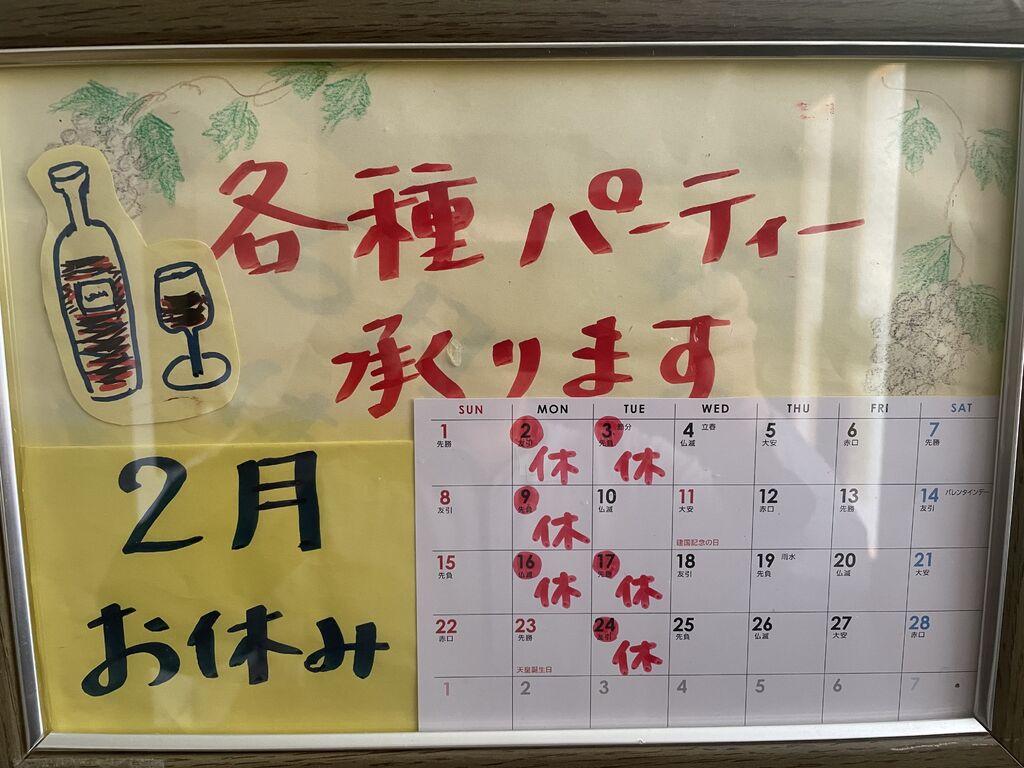 各種パーティー
承ります
2月
お休み
SUN MON TUE WED THU FRI SAT
1 2 3 節分 4 立春 5 6 7
先勝 友引 先負 仏滅 大安 赤口 先勝
休 休
8 9 10 11 12 13 14 バレンタインデー
友引 先負 仏滅 大安 赤口 先勝 友引
休 建国記念の日
15 16 17 18 19 雨水 20 21
先負 仏滅 友引 先負 仏滅 大安
休 休
22 23 24 25 26 27 28
赤口 先勝 友引 先負 仏滅 大安 赤口
天皇誕生日 休
1 2 3 4 5 6 7